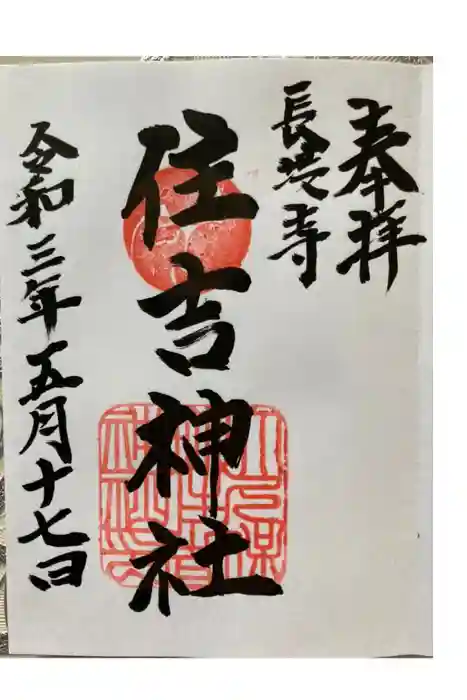 奉拝
長坂寺
住吉神社
令和三年五月十七日